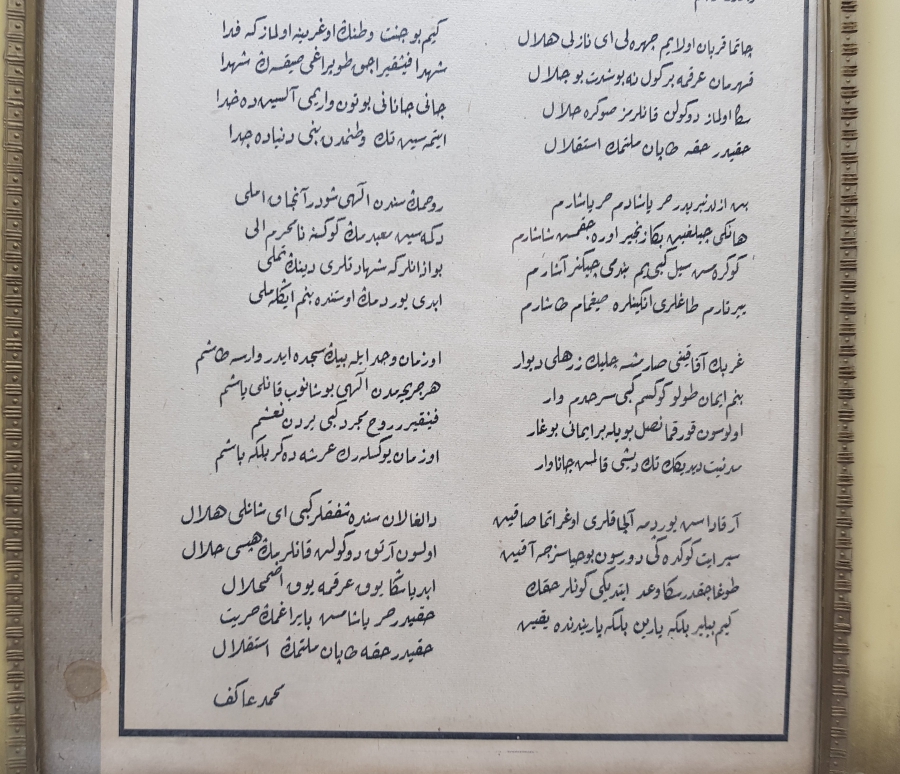 چاتما قربان اولایم چهره‌ڭی ای نازلی هلال
قهرمان عرقمه بر گول نه بو شدت بو جلال
سكا اولماز دوكولن قانلرمز صوكره حلال
حقیدر حقه طاپان ملتمڭ استقلال
بن ازلدنبریدر حر یاشادم حر یاشارم
هانكی چیلغین بكا زنجیر اوره‌جقمش شاشارم
كوكره‌مش سیل كبی‌یم بندمی چیكنر آشارم
ییرتارم طاغلری انكینلره صیغمام طاشارم
غربڭ آفاقنی صارمشسه چلیك زرهلی دیوار
بنم ایمان طولو كوكسم كبی سرحدم وار
اولوسون قورقما نصل بویله بر ایمانی بوغار
مدنیت دیدیكڭ تك دیشی قالمش جاناوار
آرقاداش یوردیمه آلچاقلری اوغراتما صاقین
سپر ایت كوكده‌ڭی دورسون بو حیاسزجه آقین
طوغاجقدر سكا وعد ایتدیكی كونلر حقڭ
كیم بیلیر بلكه یارین بلكه یاریندنده یقین
كیم بو جنت وطنڭ اوغرینه اولماز كه فدا
شهدا فیشقیراجق طوپراغی صیقسه‌ڭ شهدا
جانی جانانی بوتون واریمی آلسین ده خدا
ایتمه‌سین تك وطنمدن بنی دنیاده جدا
روحمڭ سندن الٓهی شودر آنجاق املی
دكمه‌سین معبدمڭ كوكسنه نامحرم الی
بو اذانلر كه شهادتلری دینڭ تملی
ابدی یوردمڭ اوستنده بنم ایكله‌ملی
او زمان وجد ایله بیڭ سجده ایدر وارسه طاشم
هر جریحه‌مدن الٓهی بوشانوب قانلی یاشم
فیشقیرر روح مجرد كبی یردن نعشم
او زمان یوكسله‌رك عرشه ده‌كر بلكه باشم
دالغالان سنده شفقلر كبی ای شانلی هلال
اولسون آرتق دوكولن قانلرمڭ هپسی حلال
ابدیا سكا یوق عرقمه یوق اضمحلال
حقیدر حر یاشامش بایراغمڭ حریت
حقیدر حقه طاپان ملتمڭ استقلال
محمد عاكف